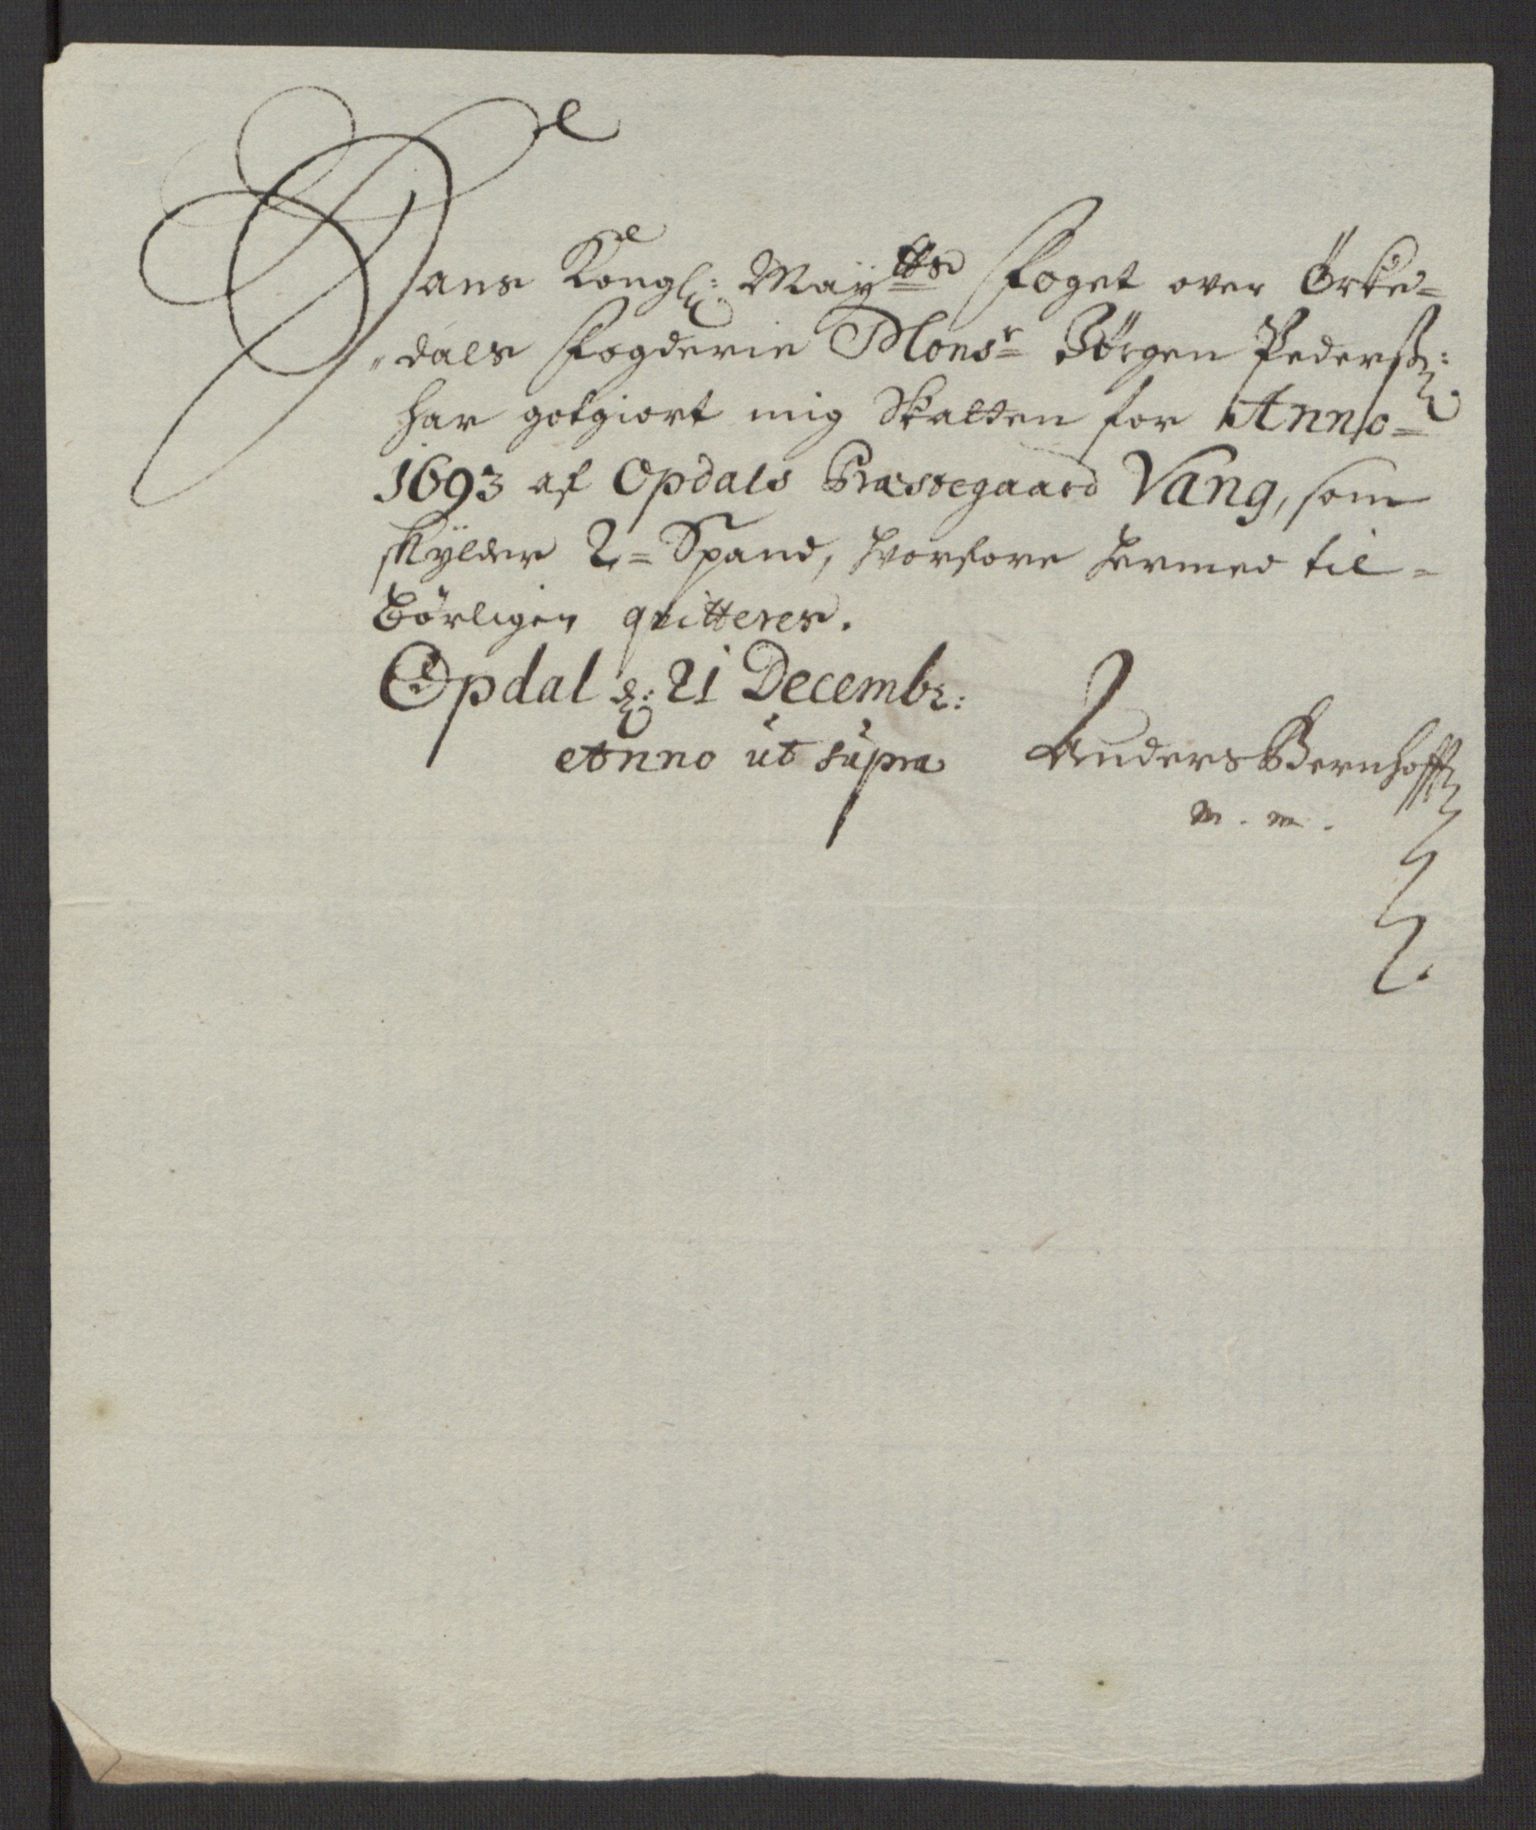 Hans Kongl: Mayttes Foget over Örke=
dals Fogderie Monsr Börgen Pederß:
har gotgiort mig Skatten for Anno=
1693 af Opdals Præstegaard Vang, som
skÿlder 2= Spand, hvorfore hermed til=
börligen qvitteres.
Opdal d: 21 Decembr:
Anno ut supra Anders Bernhoft
m. m.